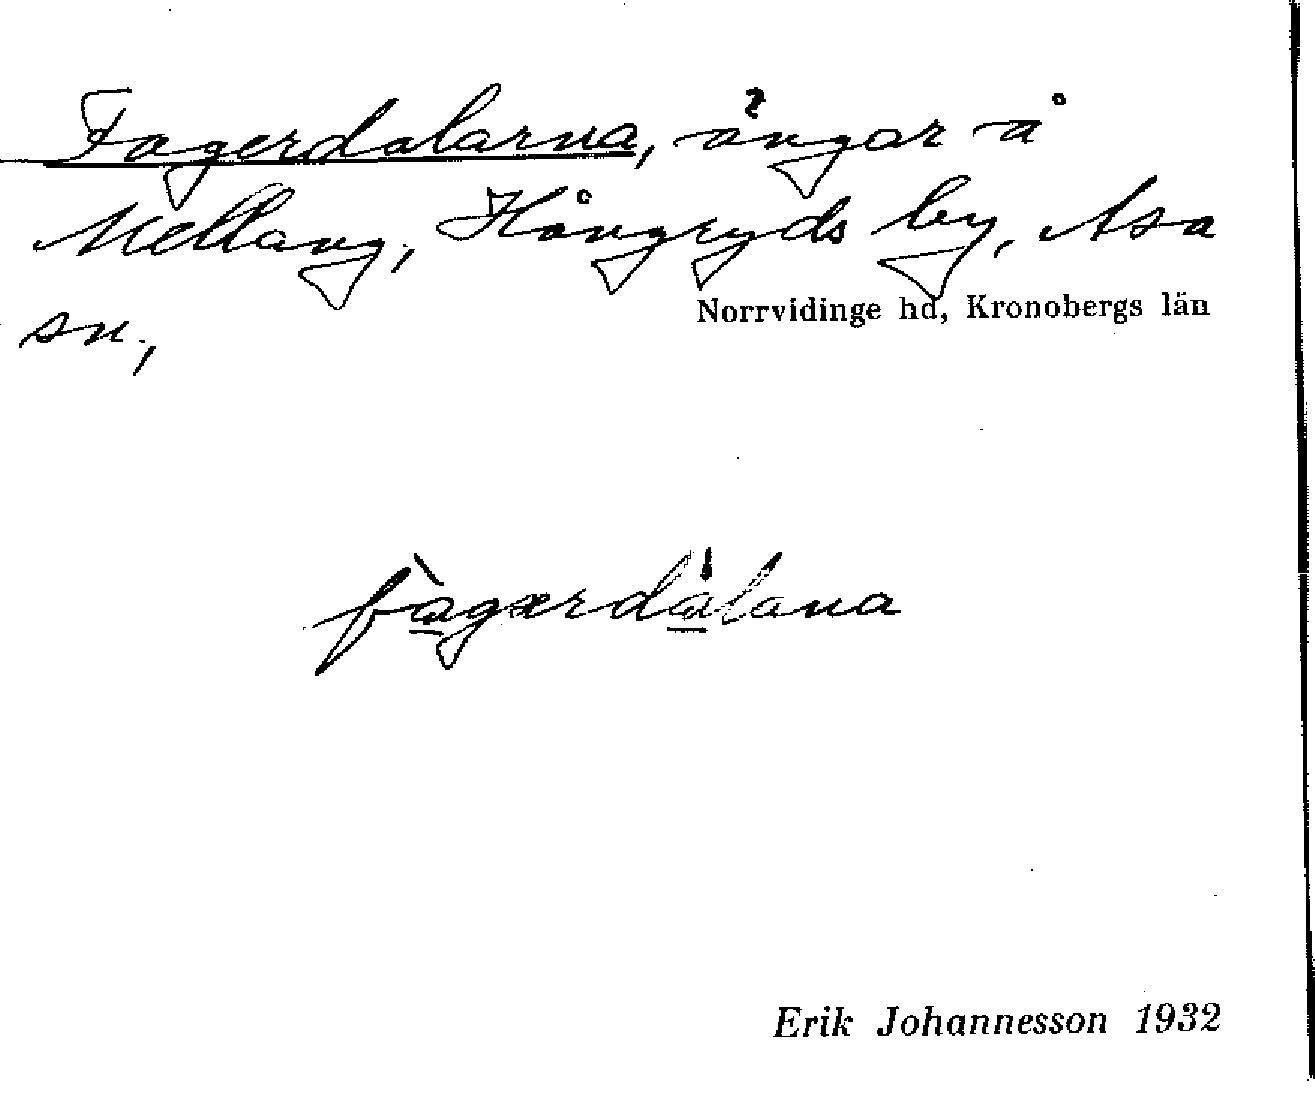 Fagerdalarna, ängar å
Mellang, Hångryds by, Asa
Norrvidinge hd, Kronobergs län
sn,
fàgərdálana
Erik Johannesson 1932